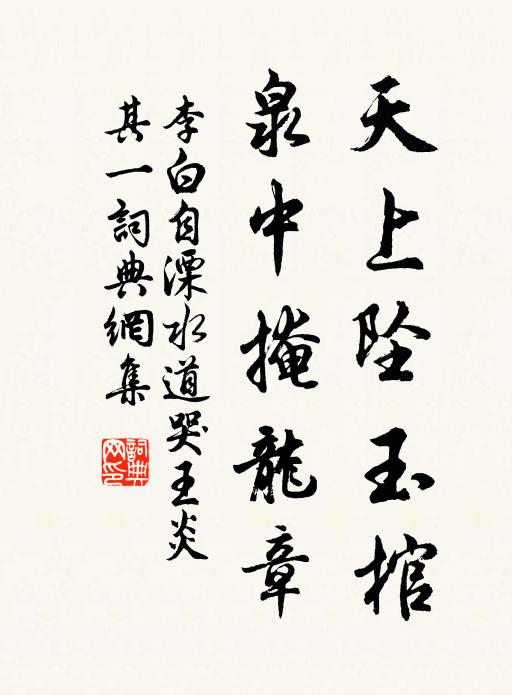 天上坠玉棺
泉中掩龍章
李白自溧水道哭王炎
其一詞典網集
詞典
网印